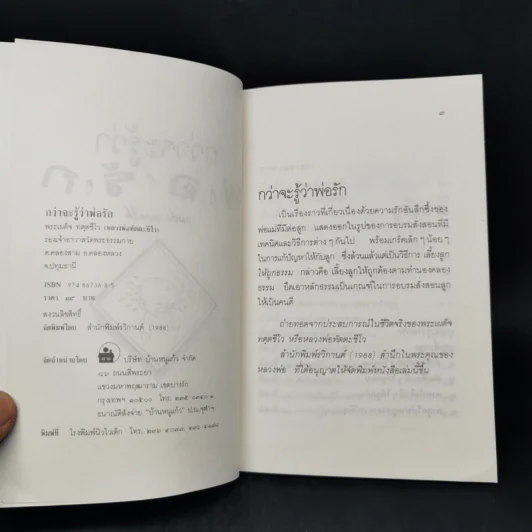 กว่าจะรู้ว่าพ่อรัก
พระเผด็จ ทตฺตชีโว (หลวงพ่อทัตตะชีโว)
รองเจ้าอาวาสวัดพระธรรมกาย
ต.คลองสาม อ.คลองหลวง
จ.ปทุมธานี
ISBN 974-86734-
ราคา บาท
สงวนลิขสิทธิ์
จัดพิมพ์โดย สำนักพิมพ์รวิกานต์ (1988)
จัดจำหน่ายโดย บริษัท บ้านหนูแก้ว จำกัด
ถนนสี่พระยา
แขวงมหาพฤฒาราม เขตบางรัก
กรุงเทพฯ ๑๐๕๐๐ โทร.
ธนาณัติสั่งจ่าย "บ้านหนูแก้ว" ปณ.จุฬาฯ
พิมพ์ที่ โรงพิมพ์นิวไวเต็ก โทร.
กว่าจะรู้ว่าพ่อรัก
เป็นเรื่องราวที่เกี่ยวเนื่องด้วยความรักอันลึกซึ้งของ
พ่อแม่ที่มีต่อลูก แสดงออกในรูปของการอบรมสั่งสอนที่มี
เทคนิคและวิธีการต่าง ๆ กันไป พร้อมเกร็ดเล็ก ๆ น้อย ๆ
ในการแก้ปัญหาให้กับลูก ซึ่งล้วนแล้วแต่เป็นวิธีการ เลี้ยงลูก
ให้ถูกธรรม กล่าวคือ เลี้ยงลูกให้ถูกต้องตามทำนองคลอง
ธรรม ยึดเอาหลักธรรมะเป็นเกณฑ์ในการอบรมสั่งสอนลูก
ให้เป็นคนดี
ถ่ายทอดจากประสบการณ์ในชีวิตจริงของพระเผด็จ
ทตฺตชีโว หรือหลวงพ่อทัตตะชีโว
สำนักพิมพ์รวิกานต์ (1988) สำนึกในพระคุณของ
หลวงพ่อ ที่ได้อนุญาตให้จัดพิมพ์หนังสือเล่มนี้ขึ้น